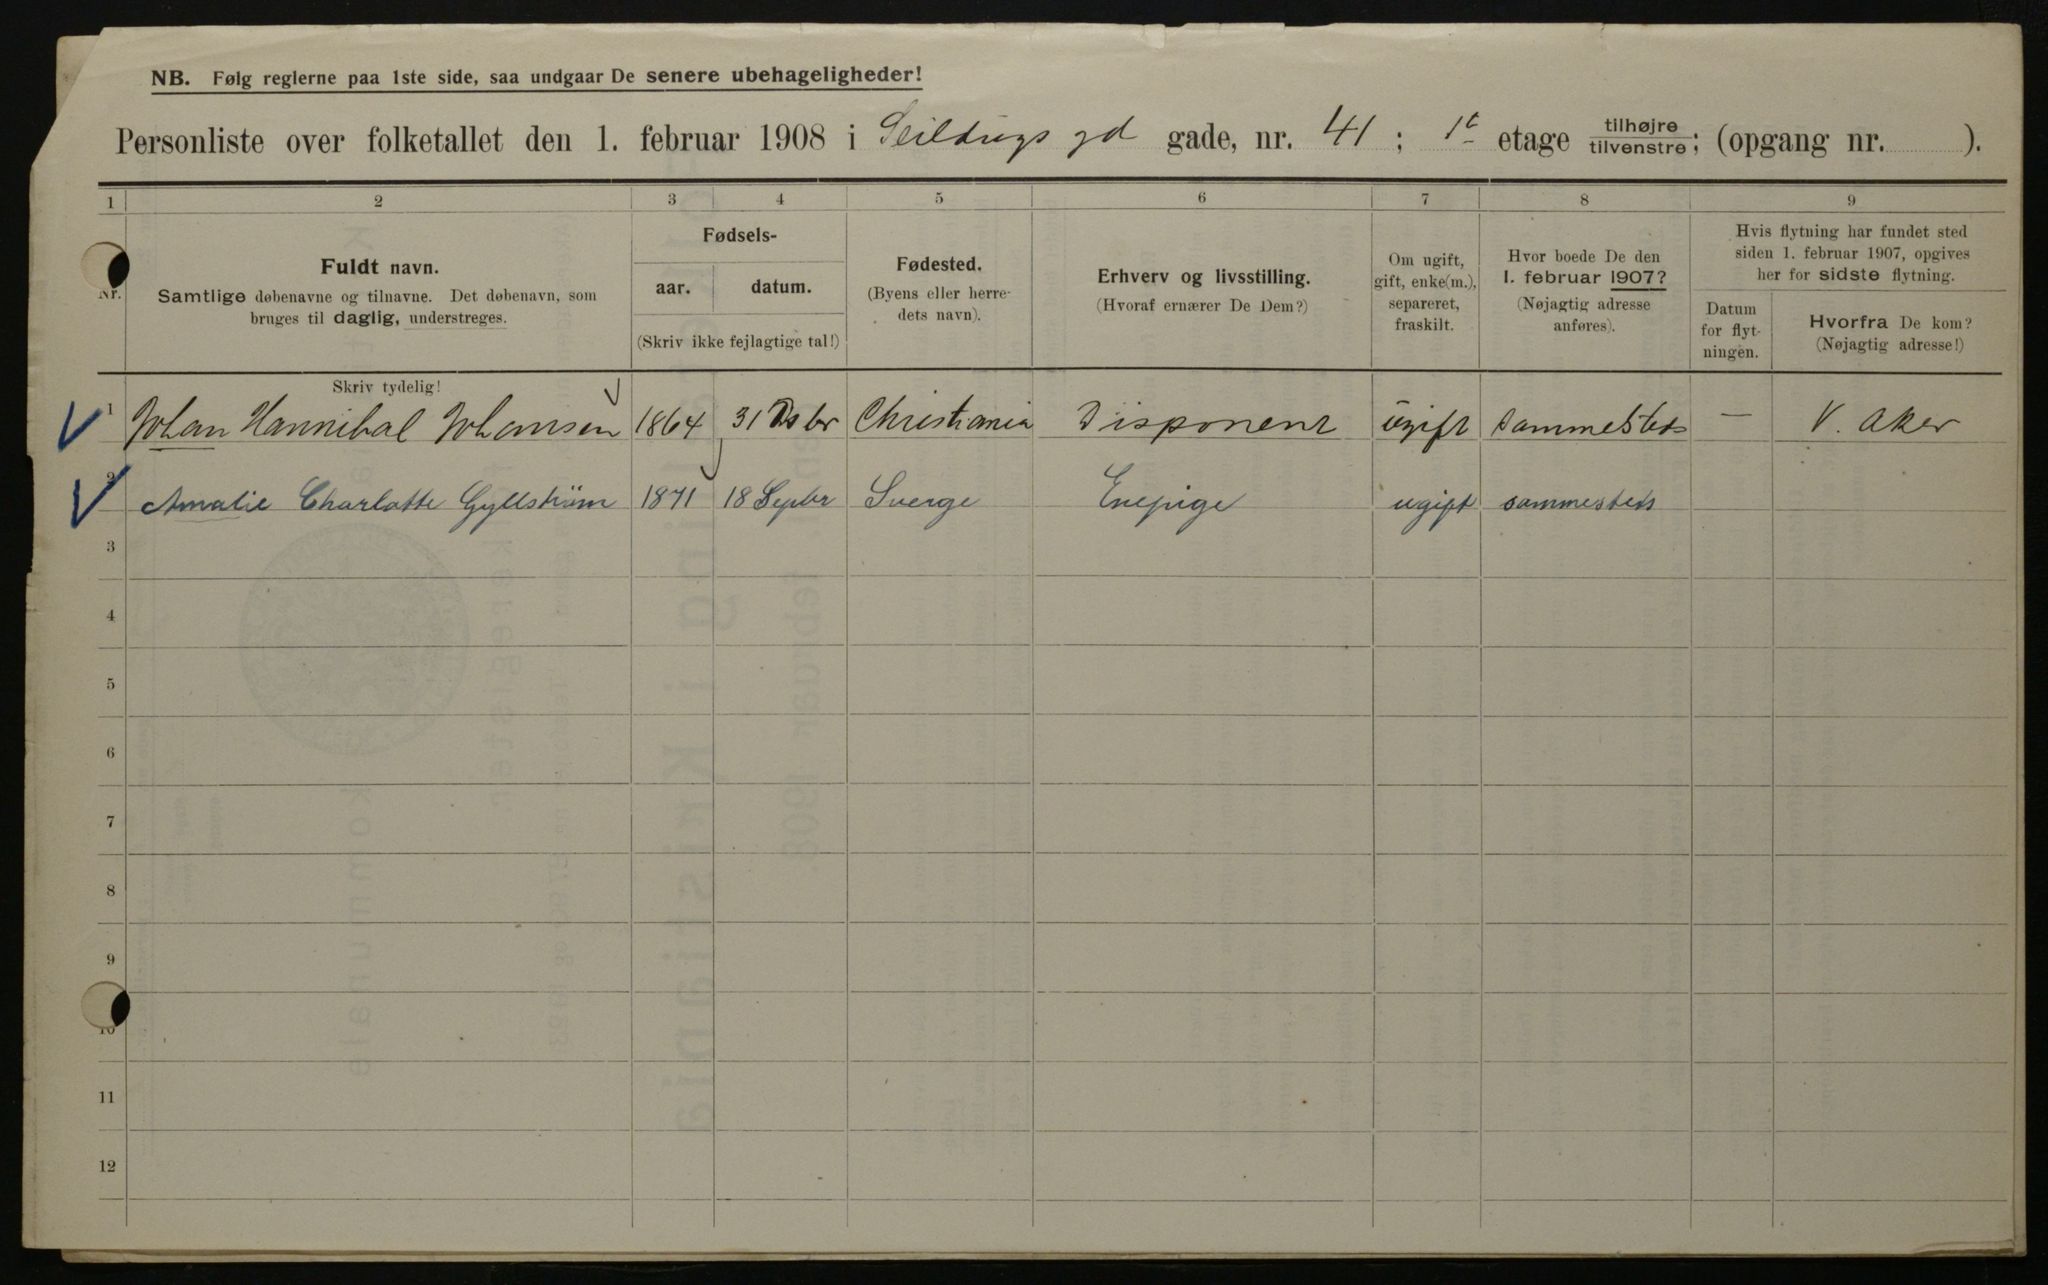 NB. Følg reglerne paa 1ste side, saa undgaar De senere ubehageligheder!
Personliste over folketallet den 1. februar 1908 i Seildugs gd gade, nr. 41 ; 1ᵗ etage tilhøjre tilvenstre; (opgang nr. ).
1 2 3 4 5 6 7 8 9
Nr.
Fuldt navn.
Samtlige døbenavne og tilnavne. Det døbenavn, som
bruges til daglig, understreges.
Skriv tydelig!
Fødsels-
aar. datum.
(Skriv ikke fejlagtige tal!)
Fødested.
(Byens eller herre-
dets navn).
Erhverv og livsstilling.
(Hvoraf ernærer De Dem?)
Om ugift,
gift, enke(m.),
separeret,
fraskilt.
Hvor boede De den
1. februar 1907?
(Nøjagtig adresse
anføres).
Hvis flytning har fundet sted
siden 1. februar 1907, opgives
her for sidste flytning.
Datum
for flyt-
ningen.
Hvorfra De kom?
(Nøjagtig adresse!)
1 Johan Hannibal Johansen 1864 31 Dsbr Christiania Disponent ugift Sammesteds — V. Aker
2 Amalie Charlotte Gyllström 1871 18 Septbr Sverge Enepige ugift sammesteds
3
4
5
6
7
8
9
10
11
12